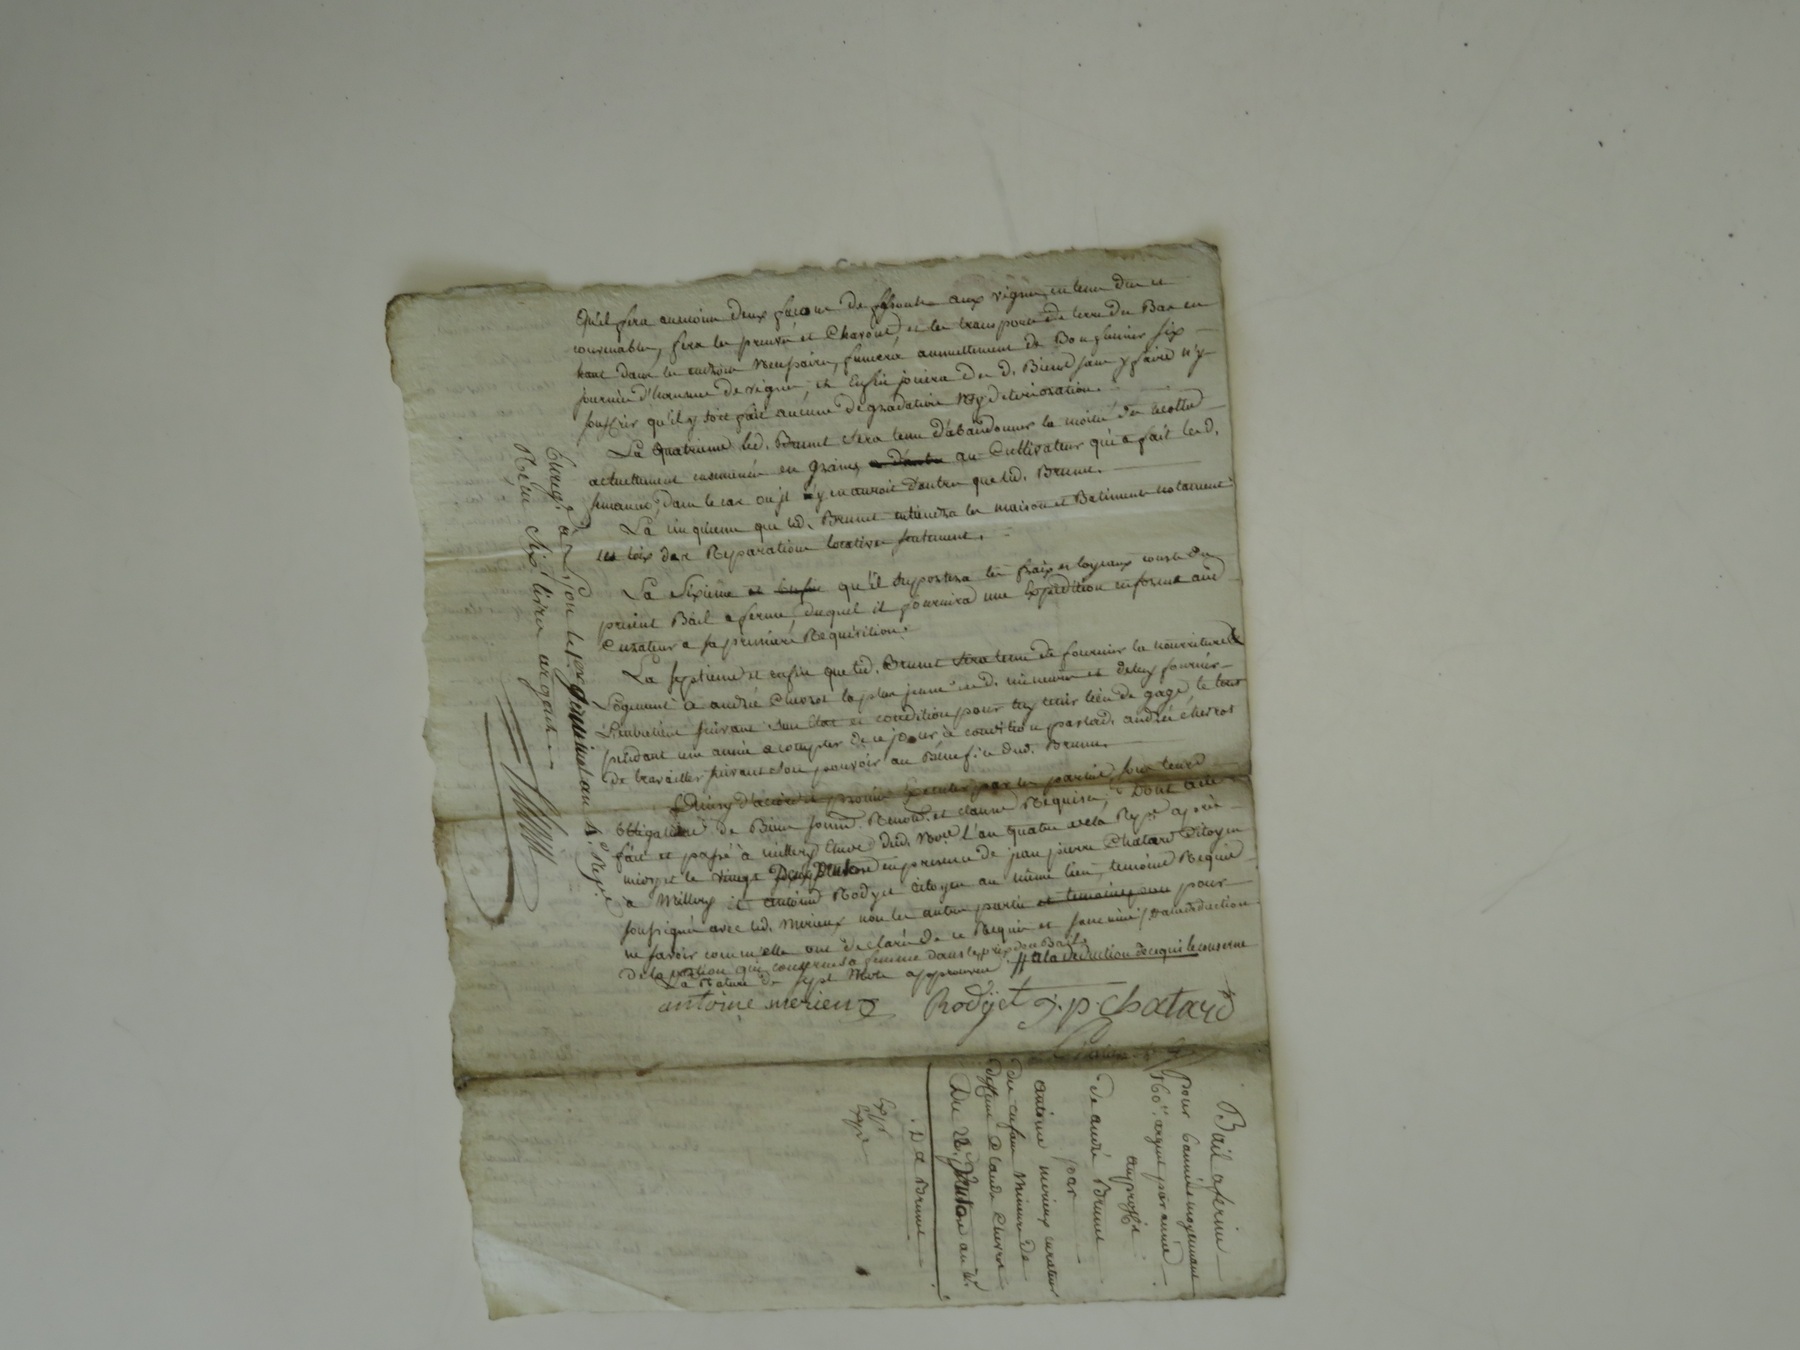 qu'il fera au moins deux façons de pioche aux vignes en tems du et
convenables, fera les preuves et Chavons, et les transports de terre du Bas en
haut dans les endroits necessaires, fumera annuellement de Bon fumier six
journées d'hommes de vignes, et Enfin jouira des d. Biens sans y faire n'y
souffrir qu'il y soit fait aucune degradation N'y deterioration.
La quatrieme led. Brunet sera tenu d'abandonner la moitié des recoltes
actuellement ensemencés en grains au Cultivateur qui a fait lesd.
semances, dans le cas ou il n'y en auroit d'autre que led. Brunet.
La cinquieme que led. Brunet entretiendra les maison et Batiments notament
les toits des Reparations locatives seulement.
La Sixieme et Enfin qu'il supportera les fraix et loyeaux couts du
present Bail a ferme, duquel il fournira une Expedition en forme aud.
Curateur a sa premiere Requisition.
La septieme et enfin que led. Brunet sera tenu de fournir la nourriture &
Logement a andré Chevrot le plus jeune des d. mineurs et de luy fournir
L'entretien suivant son Etat et condition pour luy tenir lieu de gage, le tout
pendant une année a compter de ce jour a condition par led. andré chevrot
de travailler suivant son pouvoir au Benefice dud. Brunet.
Ainsy d'accord et promis executer par les parties, sous leurs
obligations de Biens soum. Renon. et clauses Requises, Dont acte
fait et passé à millery Etude dud. No.re L'an quatre de la Rep.e après
midy et le vingt deux pluviose en presence de jean pierre Chatard Citoyen
a Millery et antoine Rodyet citoyen au même lieu, temoins Requis
soussignés avec led. Merieux non les autres parties et temoins pour
ne savoir comm'elles ont declaré de ce Requis et sommés / a la deduction
de la portion qui concernera sa femme dans le prix dud. Bail
La Rature de sept Mots approuvée # a la deduction de ce qui le concerne
antoine merieux Rodyet J. p. chatard
Enreg.é à Gon le 1er germinal an 4. Rep.
Reçu Six livres argent
Bail a ferme
Pour 6 années moyennant
160.tt argent par année
au proffit
de andré Brunet
par
antoine merieux curateur
des enfans Mineurs de
deffunt Claude Chevrot
Du 22. pluviose an 4.
D.d. Brunet
Exp.é
Exp.é